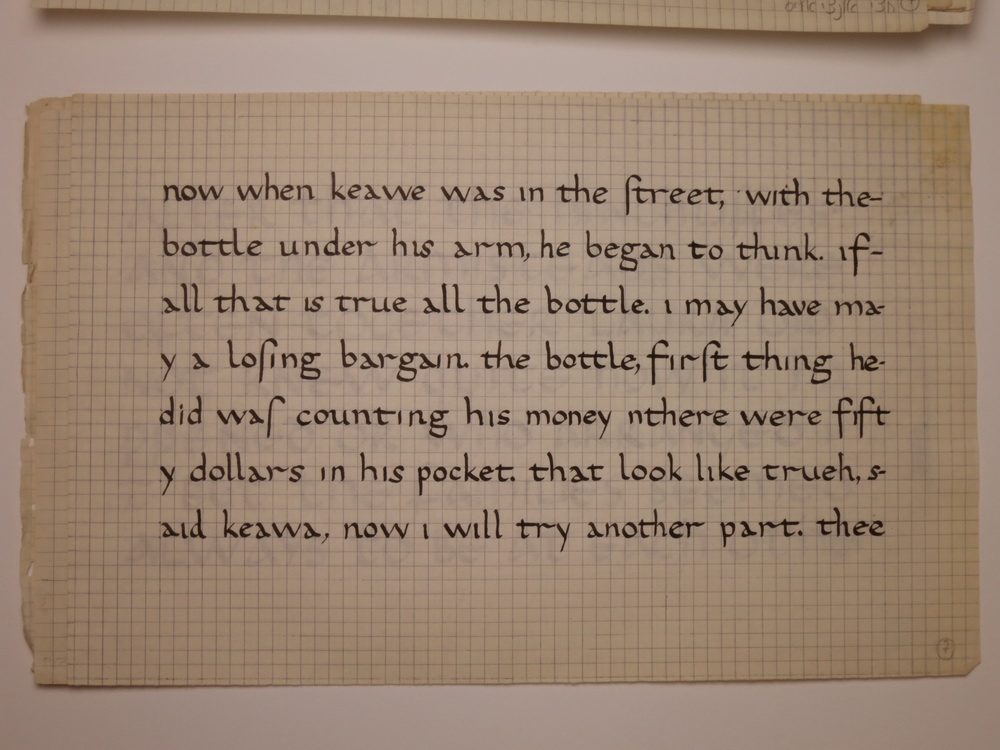 now when keawe was in the ſtreet, with the-
bottle under his arm, he began to think. if-
all that is true all the bottle. i may have ma-
y a loſing bargain. the bottle, firſt thing he-
did waſ counting his money nthere were fift
y dollars in his pocket. that look like trueh, s-
aid keawa, now i will try another part. thee